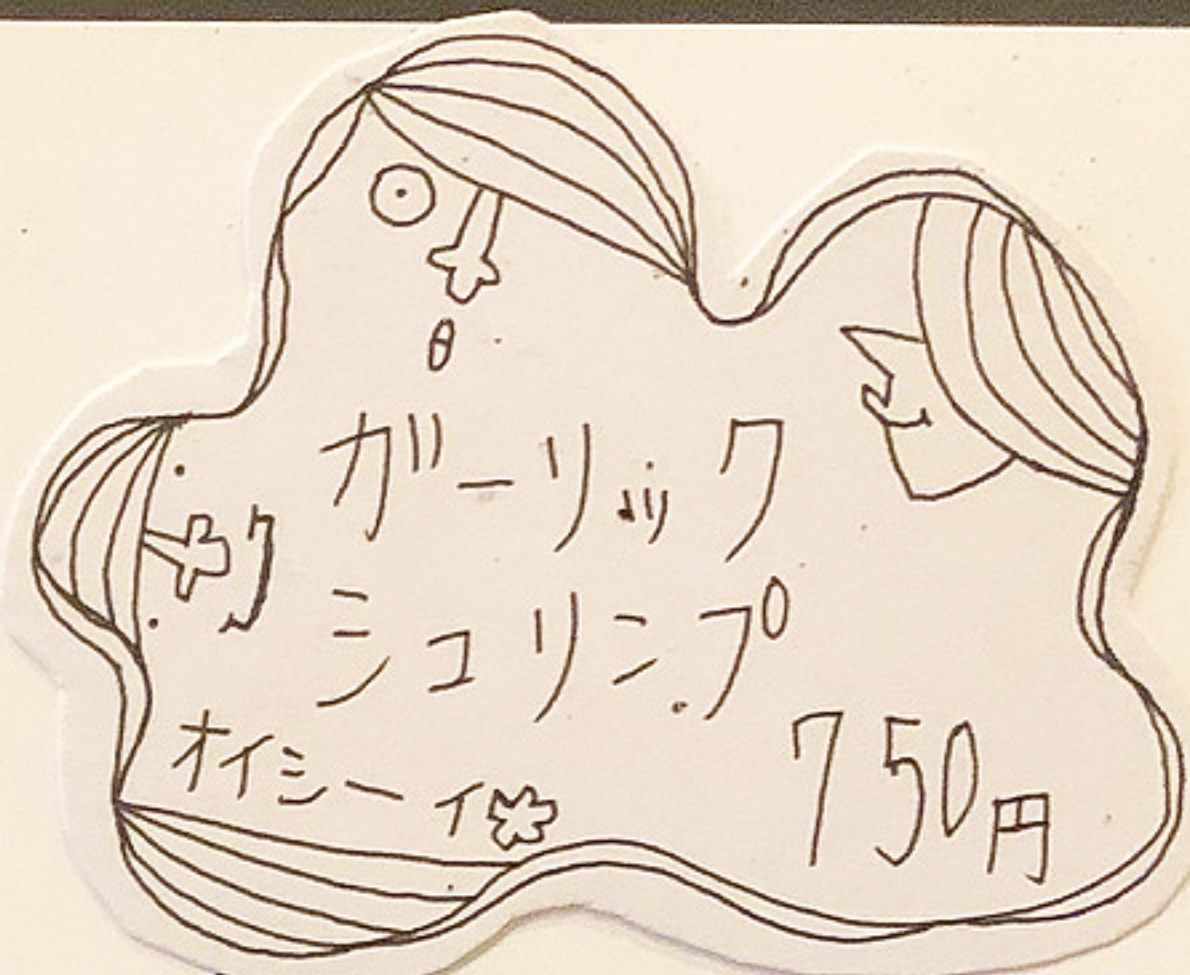 ガーリック
シュリンプ
オイシーィ
750円